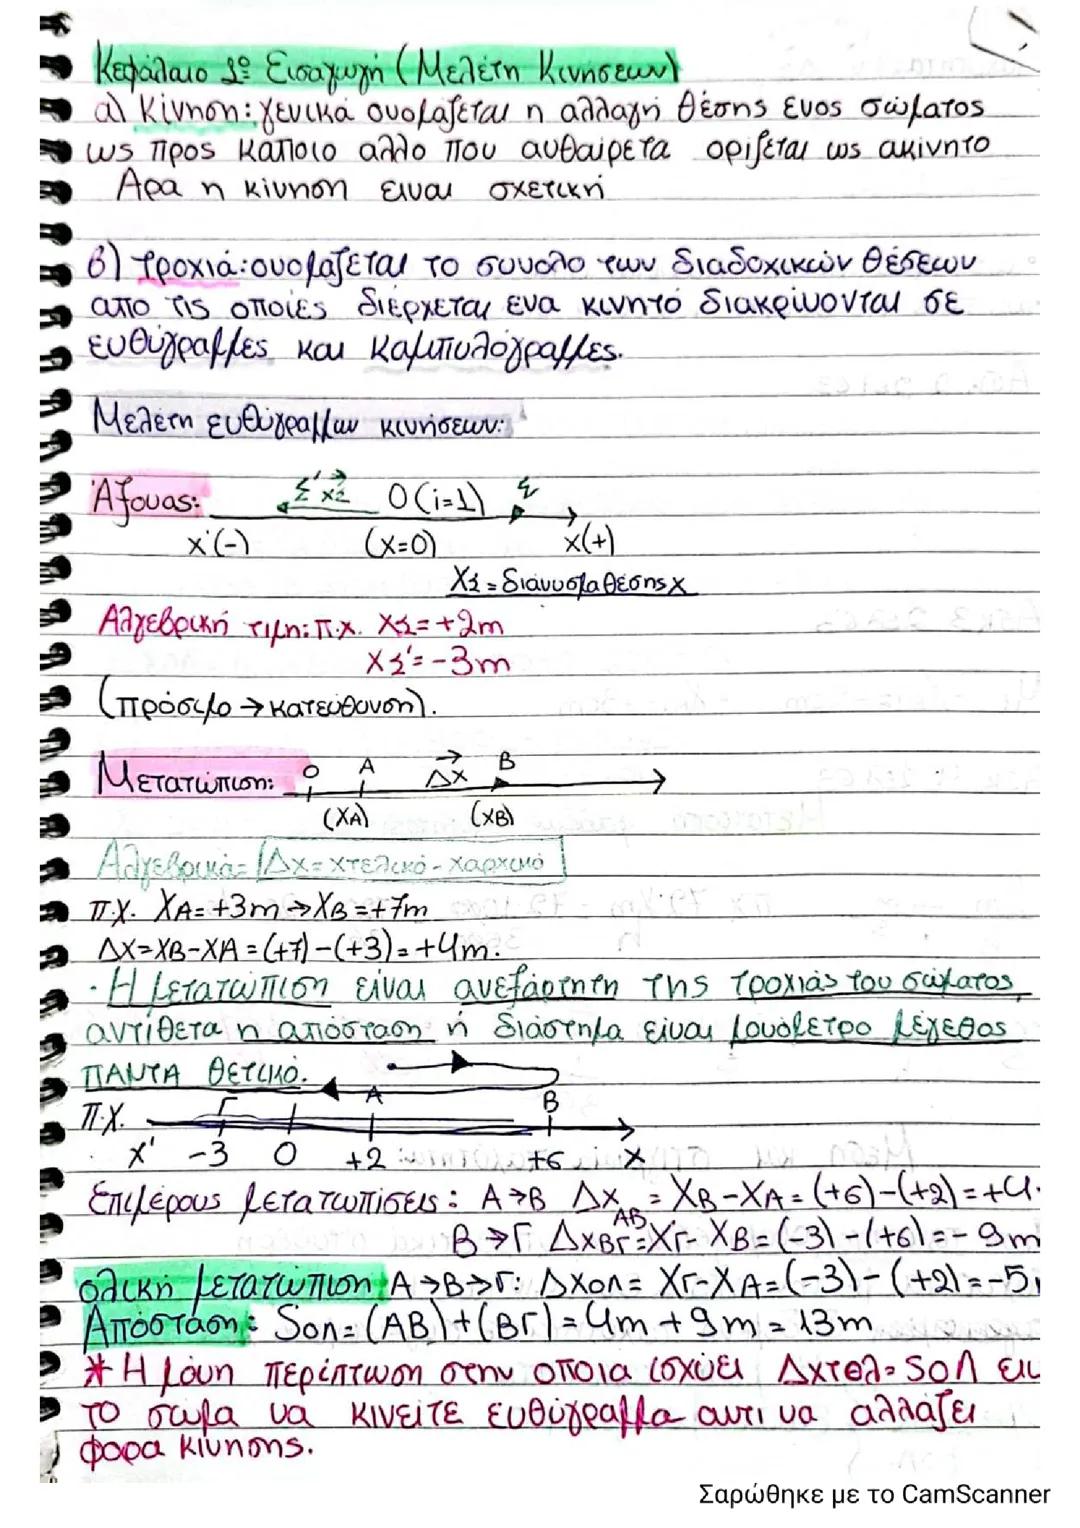 Κεφάλαιο 1º Εισαγωγή (Μελέτη Κινήσεων)
α) Κίνηση: γενικά ονομάζεται η αλλαγή θέσης ενός σώματος
ως προς κάποιο άλλο που αυθαίρετα ορίζεται ως ακίνητο
Άρα η κίνηση είναι σχετική
β) Τροχιά: ονομάζεται το σύνολο των διαδοχικών θέσεων
απο τις οποίες διέρχεται ένα κινητό διακρίνονται σε
ευθύγραμμες και καμπυλόγραμμες.
Μελέτη ευθύγραμμων κινήσεων:
Άξονας: Σ' x₂ Ο (i=1) Σ
x'(-) (x=0) x(+)
XΣ = διάνυσμα θέσης x
Αλγεβρική τιμη: π.χ. XΣ=+2m
XΣ'=-3m
(πρόσιμο → κατεύθυνση).
Μετατώπιση: Ο Α Δx Β
(XA) (XB)
Αλγεβρικά= Δx= xτελικό - xαρχικό
π.χ. XA=+3m → XB=+7m
Δx=XB-XA=(+7)-(+3)=+4m.
· Η μετατώπιση είναι ανεξάρτητη της τροχιάς του σώματος,
αντίθετα η απόσταση ή διάστημα είναι μονόμετρο μέγεθος
ΠΑΝΤΑ θετικό.
π.χ. Γ Α Β
x' -3 0 +2 +6 x
Επιμέρους μετατωπίσεις: Α→Β ΔxAB = XB-XA=(+6)-(+2)=+4.
Β→Γ ΔxΒΓ=XΓ-XB=(-3)-(+6)=-9m
ολική μετατώπιση Α→Β→Γ: Δxολ= XΓ-XA=(-3)-(+2)=-5
Απόσταση: Sολ=(ΑΒ)+(ΒΓ)=4m+9m=13m
* Η μόνη περίπτωση στην οποια ισχύει Δxτελ=Sολ
το σωμα να κινείτε ευθύγραμμα αντι να αλλάζει
φορα κίνησης.
Σαρώθηκε με το CamScanner